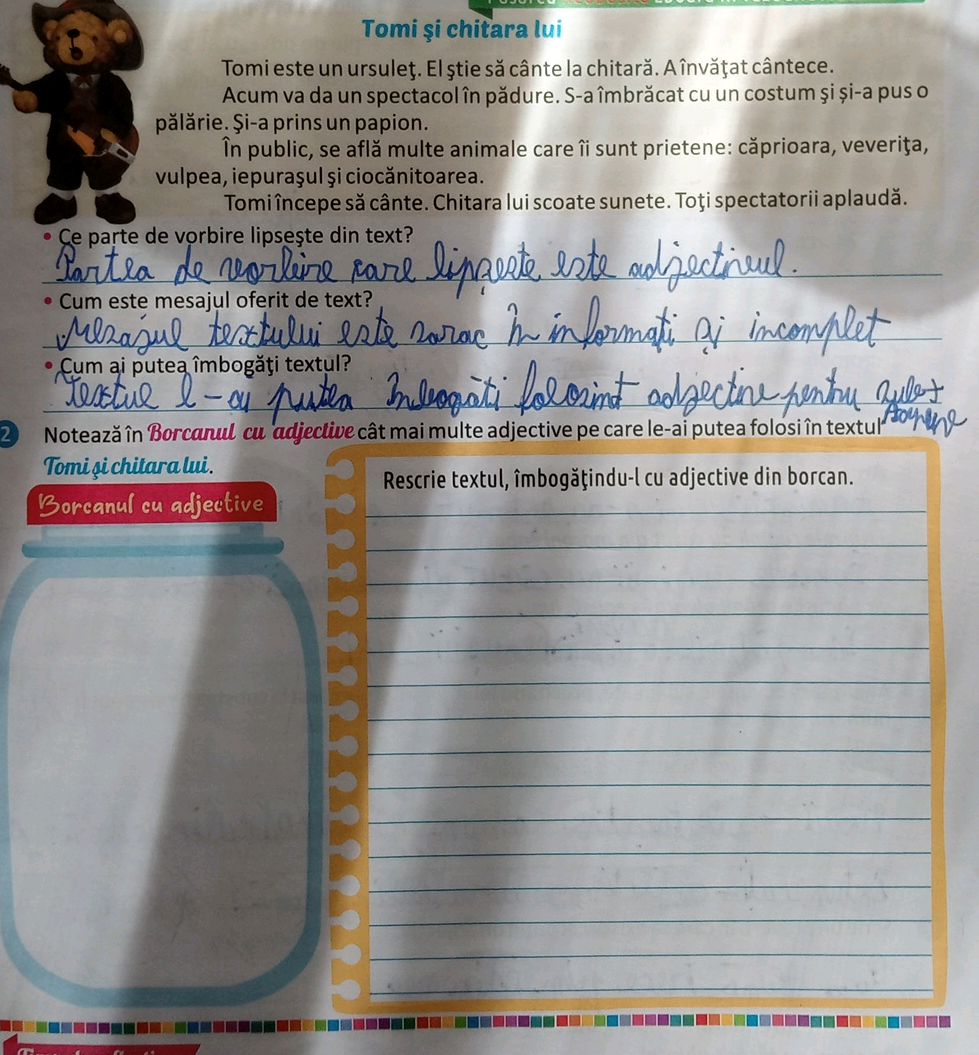 Tomi şi chitara lui
Tomi este un ursuleţ. El ştie să cânte la chitară. A învăţat cântece.
Acum va da un spectacol în pădure. S-a îmbrăcat cu un costum şi şi-a pus o
pălărie. Şi-a prins un papion.
În public, se află multe animale care îi sunt prietene: căprioara, veveriţa,
vulpea, iepuraşul şi ciocănitoarea.
Tomi începe să cânte. Chitara lui scoate sunete. Toţi spectatorii aplaudă.
• Ce parte de vorbire lipseşte din text?
Partea de vorbire care lipsește este adjectivul.
• Cum este mesajul oferit de text?
Mesajul textului este sarac în informați și incomplet
• Cum ai putea îmbogăţi textul?
Textul l-aș putea îmbogăți folosint adjective pentru
2 Notează în Borcanul cu adjective cât mai multe adjective pe care le-ai putea folosi în textul
Tomi şi chitara lui.
Borcanul cu adjective
Rescrie textul, îmbogăţindu-l cu adjective din borcan.